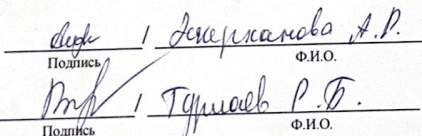 / Эшерханова А.Р.
Подпись Ф.И.О.
/ Турлаев Р.Б.
Подпись Ф.И.О.